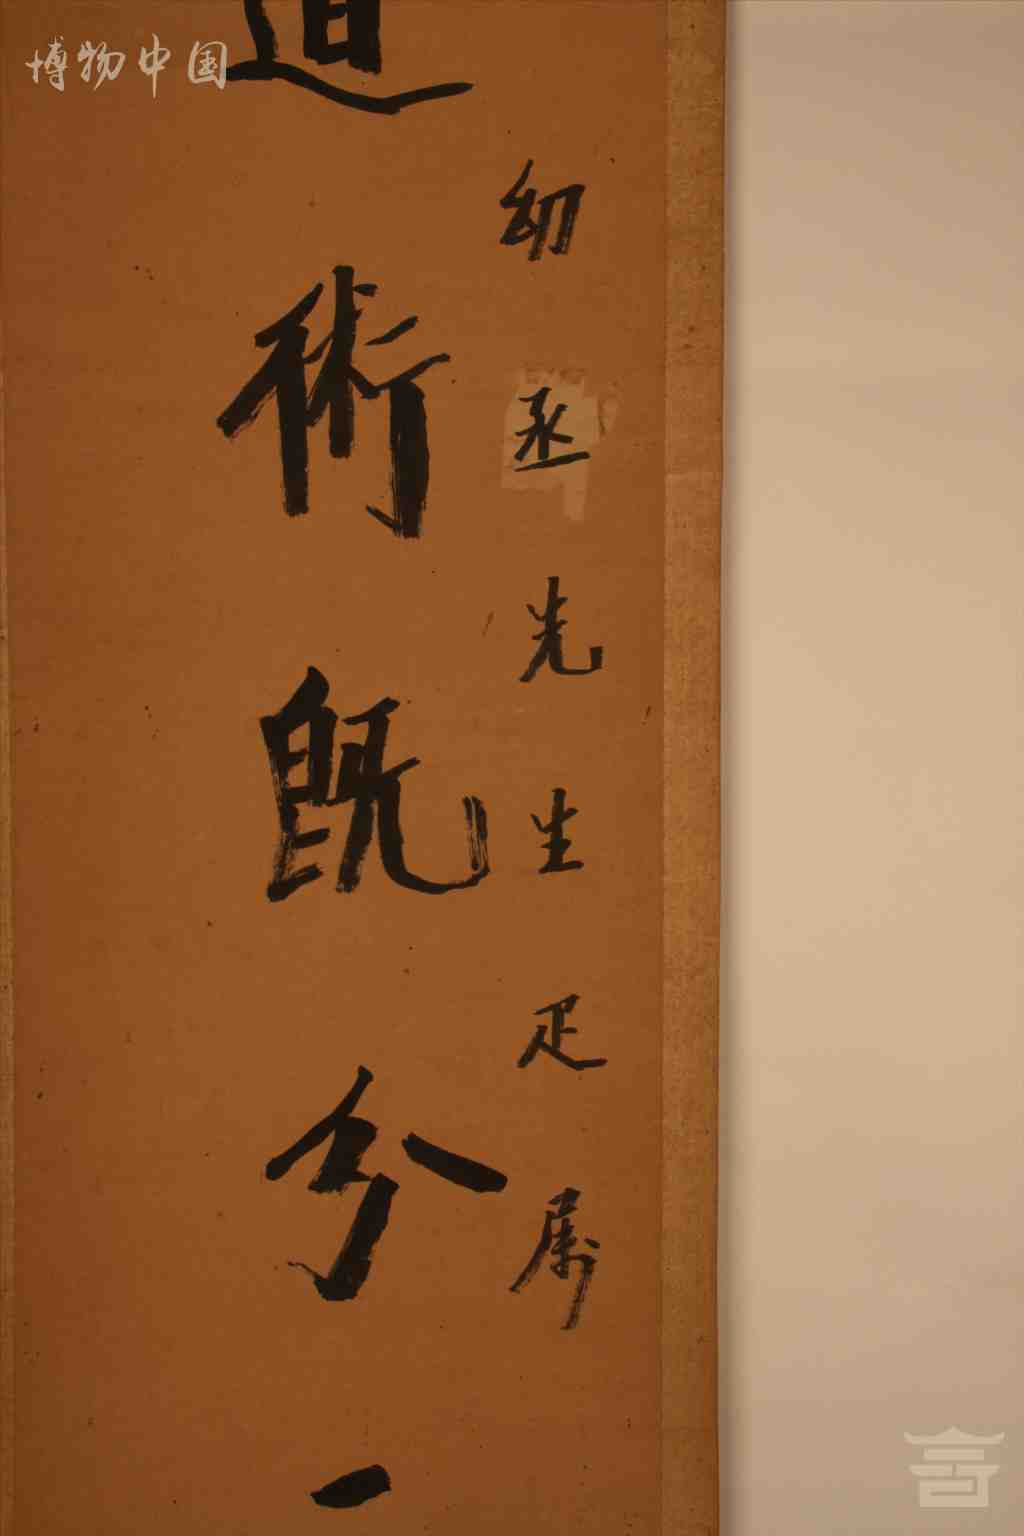 博物中国
幼丞先生疋属
道術既分一